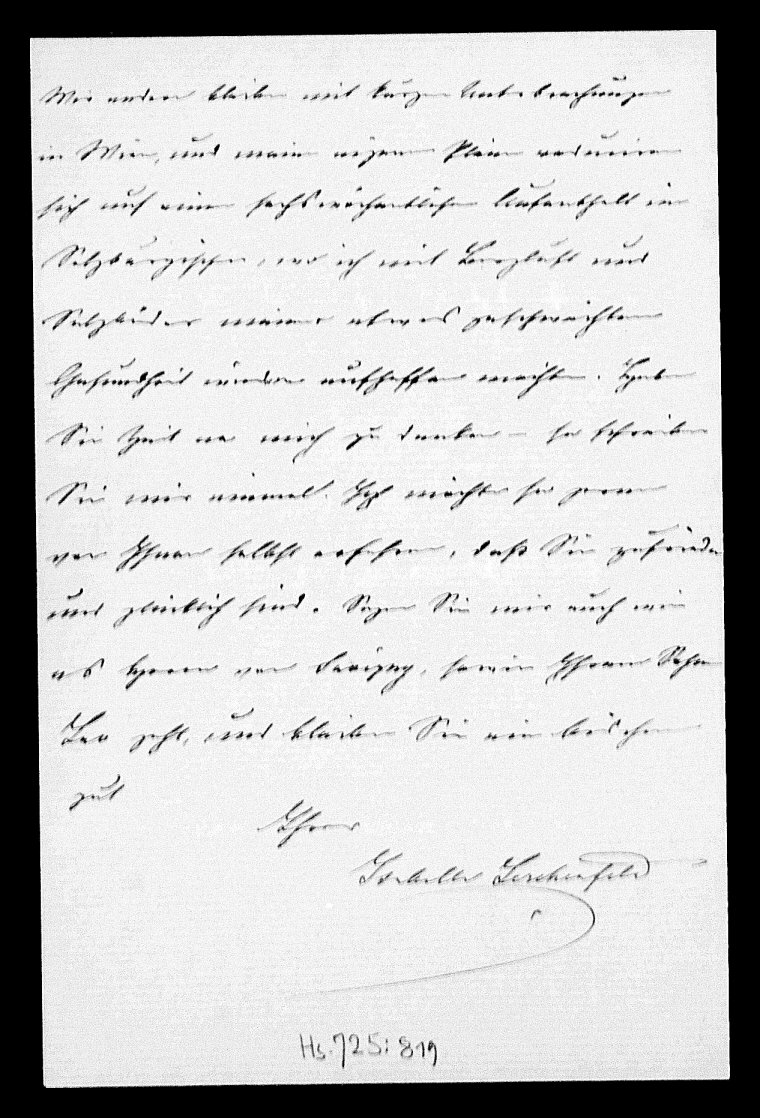 Wir andern bleiben mit kurzen Unterbrechungen
in Wien, und meine eigenen Pläne reduciren
sich auf einen sechswöchentlichen Aufenthalt im
Salzburgischen, wo ich mit Bergluft und
Salzbäder meiner etwas geschwächten
Gesundheit wieder aufhelfen möchte. Haben
Sie Zeit an mich zu denken – so schreiben
Sie mir einmal. Ich möchte so gerne
von Ihnen selbst erfahren, daß Sie zufrieden
und glücklich sind. Sagen Sie mir auch wie
es Herrn von Savigny, sowie Ihrem Sohn
Leo geht, und bleiben Sie ein bischen
gut
Ihrer
Isabella Lerchenfeld
Hs. 725: 819